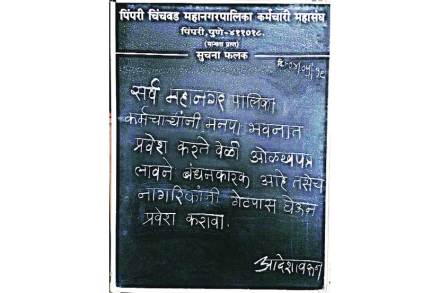 पिंपरी चिंचवड महानगरपालिका कर्मचारी महासंघ
पिंपरी, पुणे-४११०१८.
(मान्यता प्राप्त)
सुचना फलक
सर्व महानगर पालिका
कर्मचाऱ्यांनी मनपा भवनात
प्रवेश करते वेळी ओळखपत्र
लावने बंधनकारक आहे तसेच
नागरिकांनी गेटपास घेऊन
प्रवेश करावा.
आदेशावरून